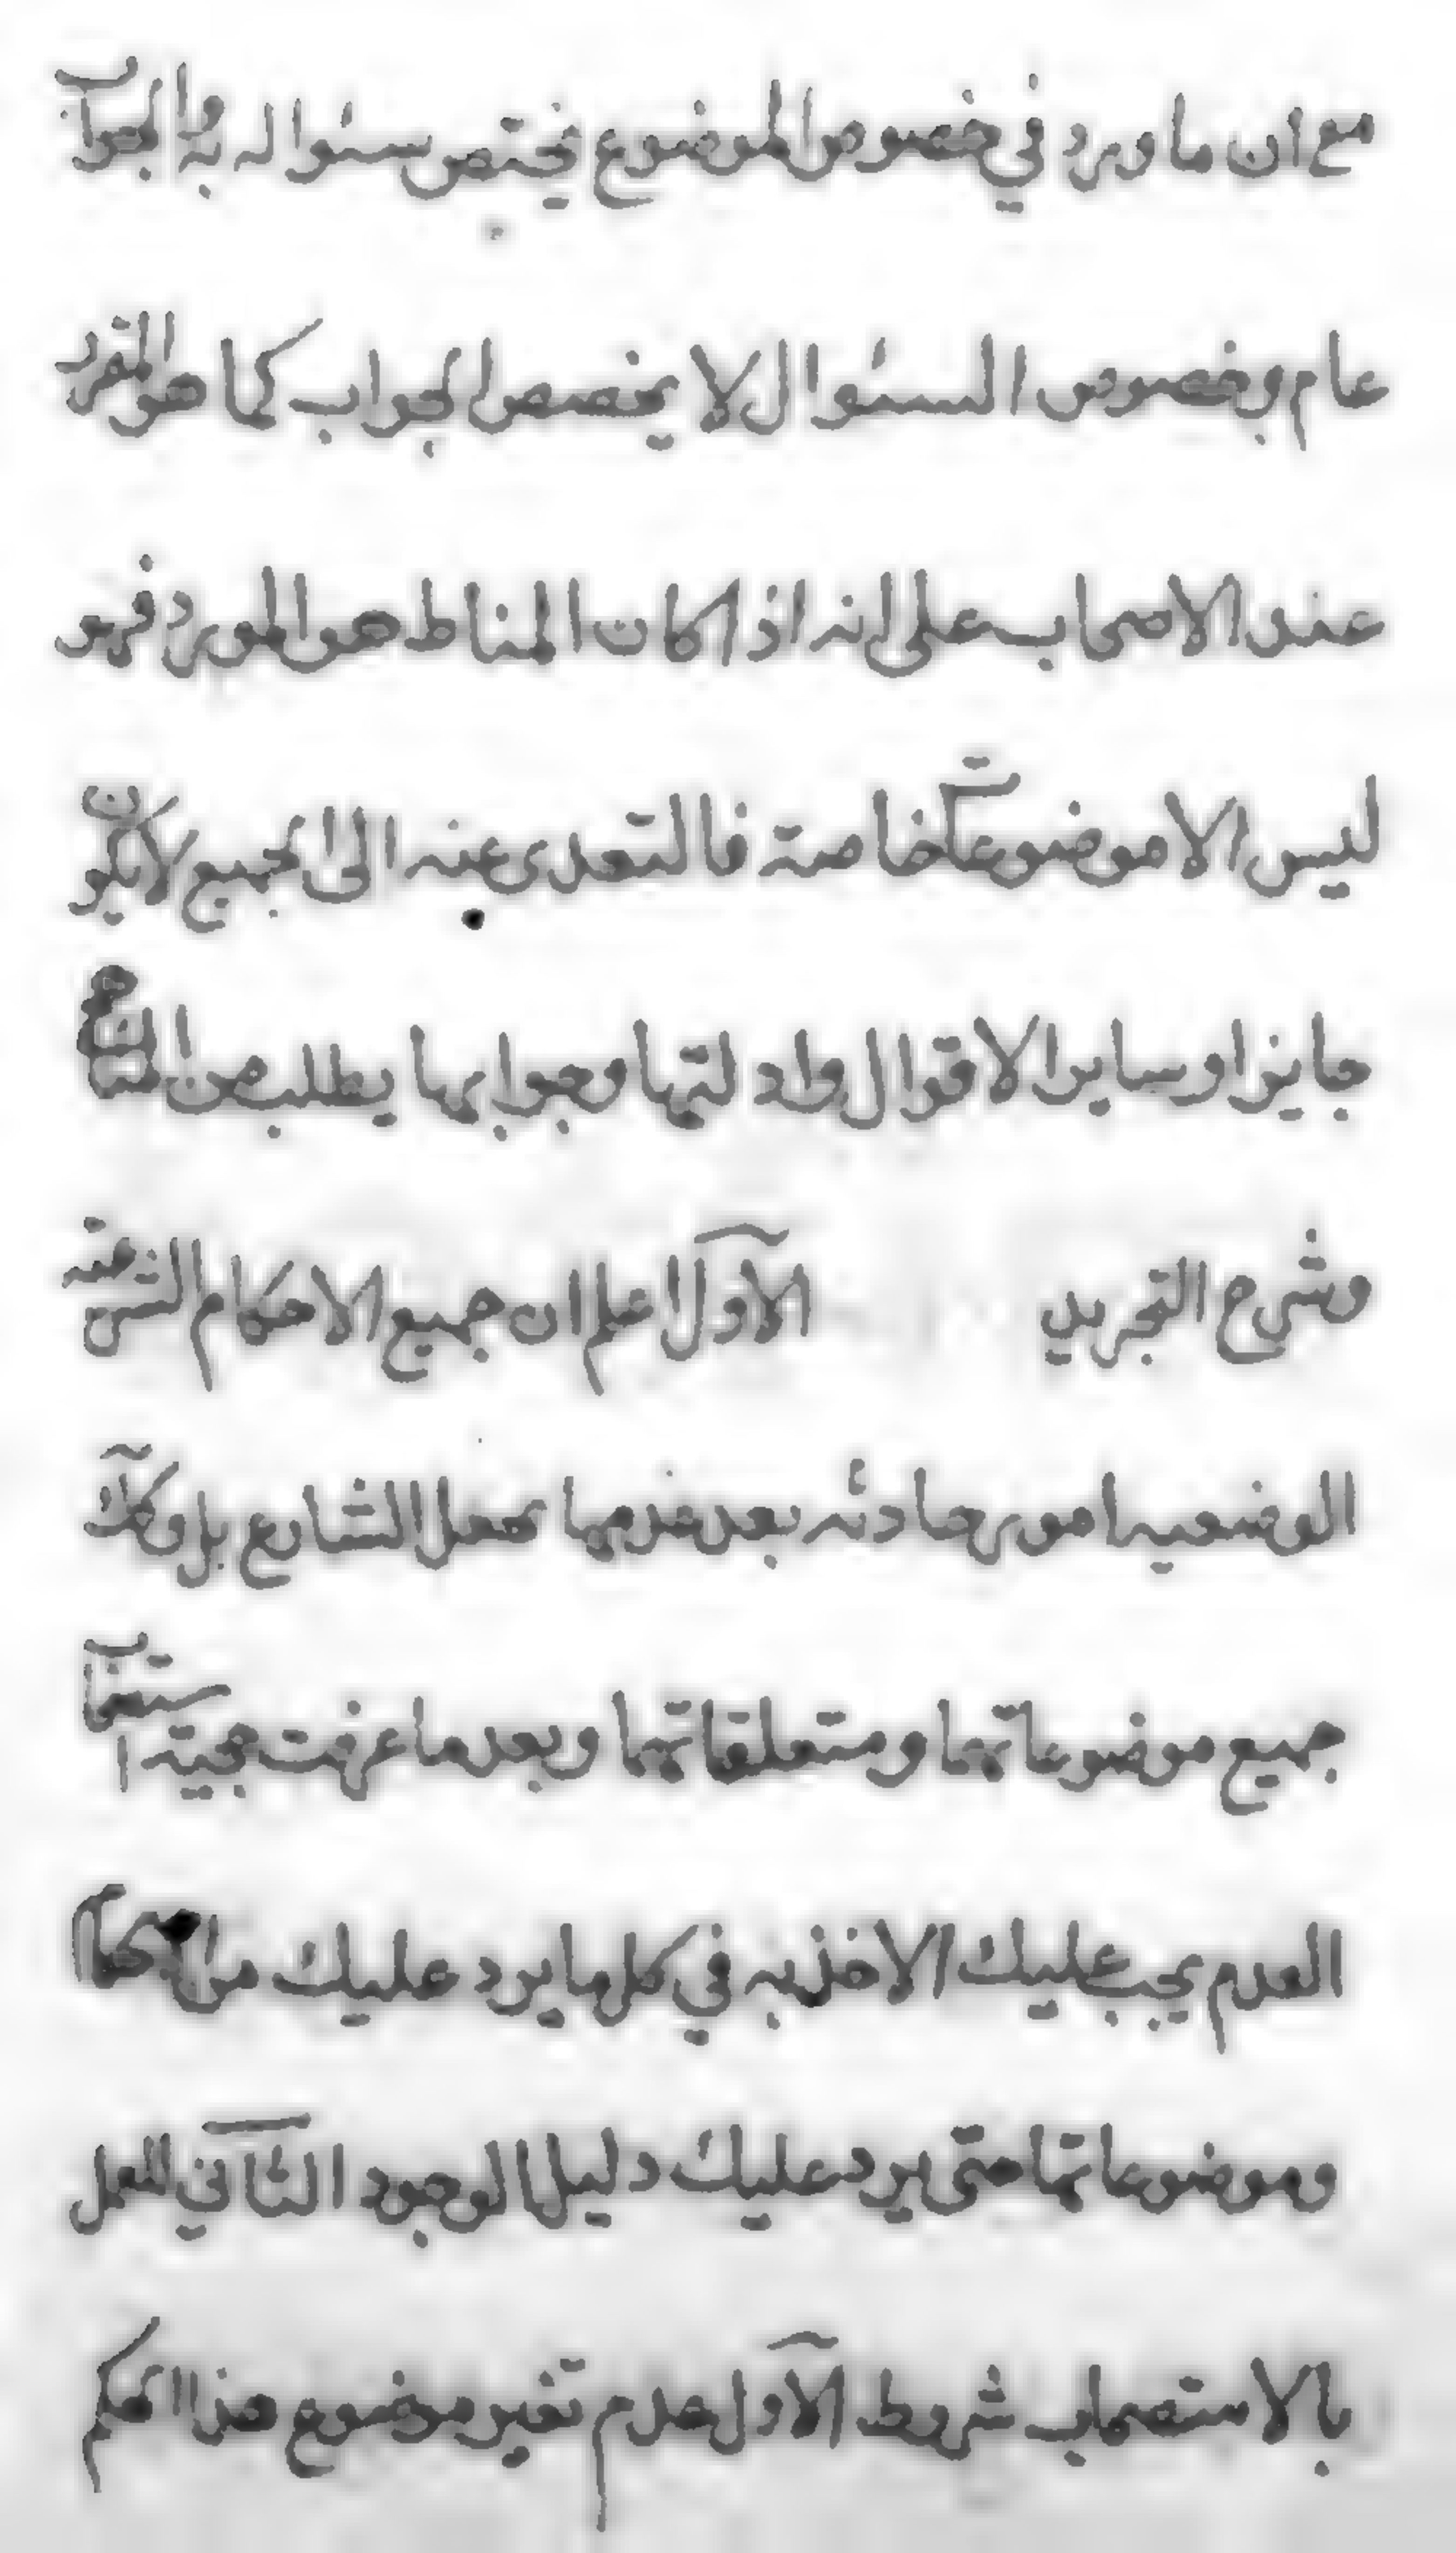 مع ان ما ورد في خصوص الموضوع يختص سئواله به الجواب
عام وبخصوص السئوال لا يخصص الجواب كما هو المقرر
عند الاصحاب على انه اذا كان المناط هو المورد فهو
ليس الا موضوعات خاصة فالتعدى عنه الى الجميع لا يكون
جايزا وساير الاقوال وادلتها وجوابها يطلب من المناهج
وشرح التجريد الاول اعلم ان جميع الاحكام الشرعية
الوضعيه امور حادثه بعد عدمها بجعل الشارع بل وكذلك
جميع موضوعاتها ومتعلقاتها وبعد ما عرفت حجية استصحاب
العدم يجب عليك الاخذ به في كل ما يرد عليك من الاحكام
وموضوعاتها حتى يرد عليك دليل الوجود الثاني للعمل
بالاستصحاب شروط الاول عدم تغير موضوع هذا الحكم